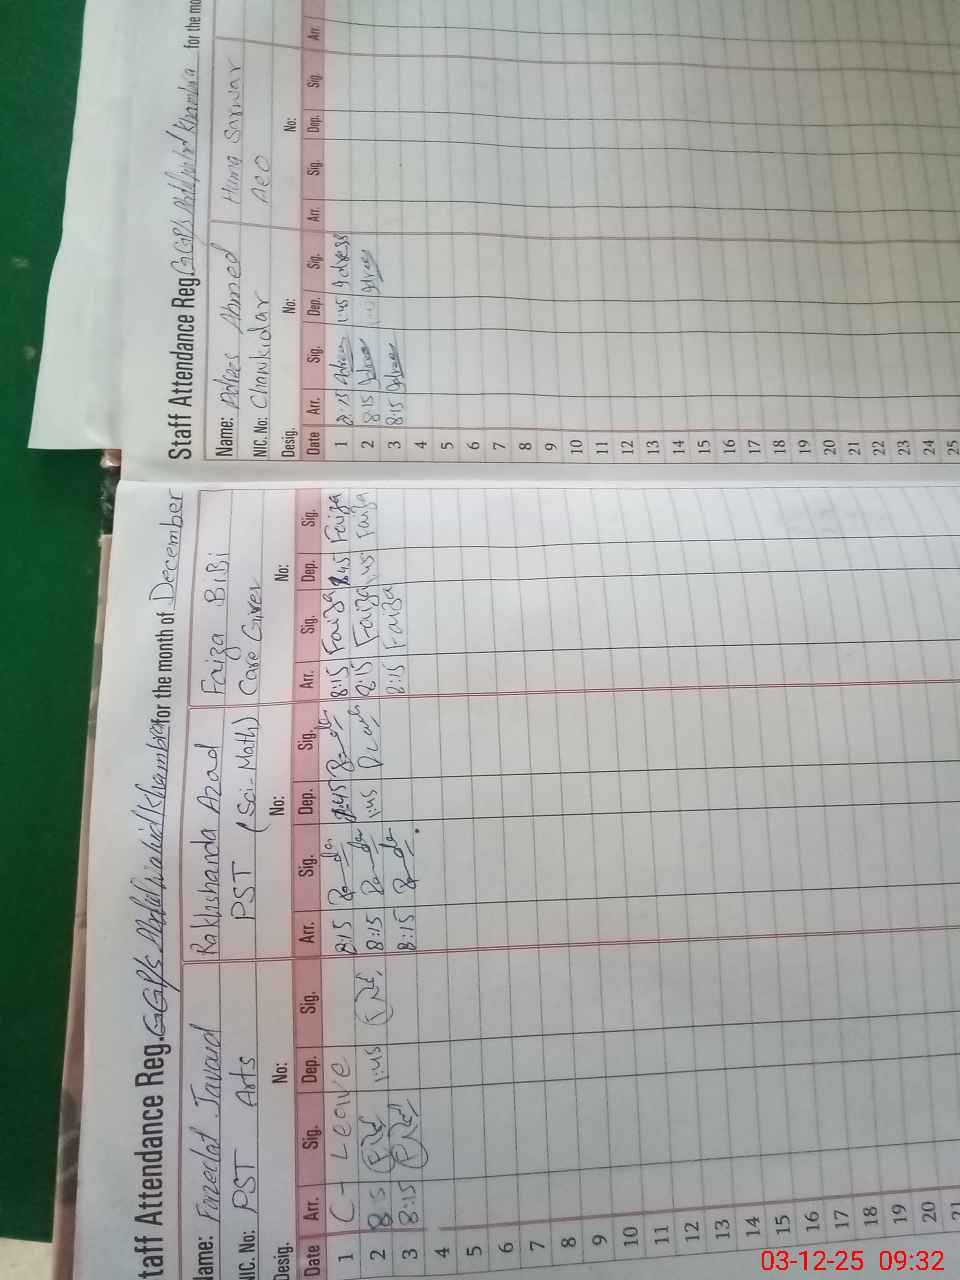 Staff Attendance Reg. GGP/s Abdul Wahid Khambra for the month of December
Name: Fazeelat Javaid Rakhshanda Azad Faiza BiBi
NIC. No: PST Arts PST (Sci-Math) Care Giver
Desig. No: No: No:
Date Arr. Sig. Dep. Sig. Arr. Sig. Dep. Sig. Arr. Sig. Dep. Sig.
1 C- Leave 8:15 1:45 8:15 Faiza 1:45 Faiza
2 8:15 1:45 8:15 1:45 8:15 Faiza 1:45 Faiza
3 8:15 8:15 8:15 Faiza
4
5
6
7
8
9
10
11
12
13
14
15
16
17
18
19
20
21
Staff Attendance Reg. GGP/s Abdul Wahid Khambra for the mo
Name: Ahmed Hamg Sarwar
NIC. No: Chawkidar AEO
Desig. No: No:
Date Arr. Sig. Dep. Sig. Arr. Sig. Dep. Sig. Arr.
1 8:15 1:45
2 8:15
3 8:15
4
5
6
7
8
9
10
11
12
13
14
15
16
17
18
19
20
21
22
23
24
25
03-12-25 09:32